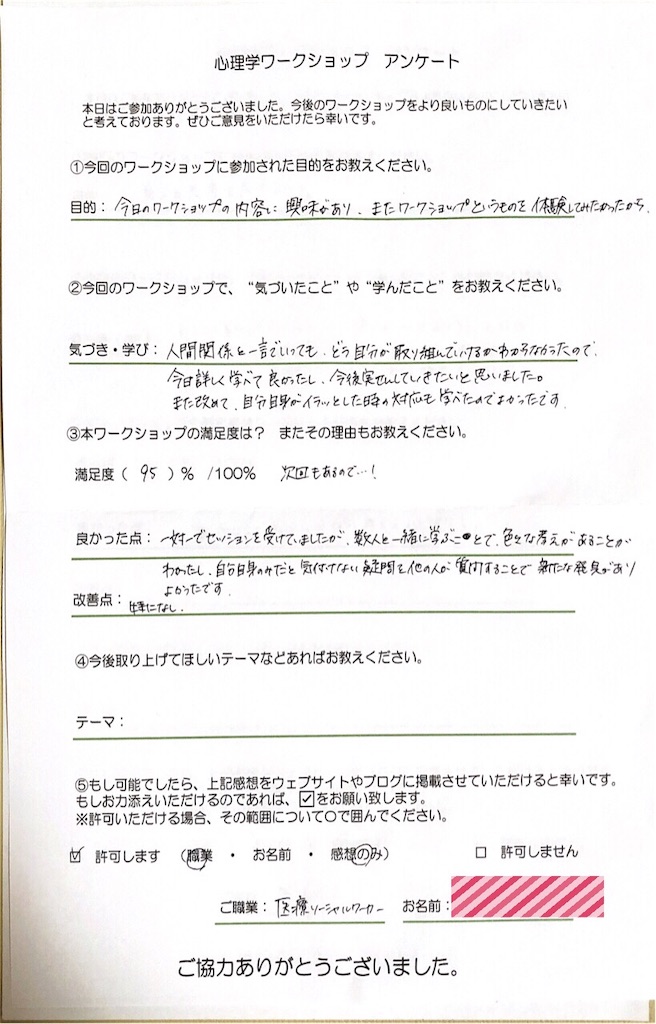 心理学ワークショップ　アンケート
本日はご参加ありがとうございました。今後のワークショップをより良いものにしていきたい
と考えております。ぜひご意見をいただけたら幸いです。
①今回のワークショップに参加された目的をお教えください。
目的：今日のワークショップの内容に興味があり、またワークショップというものを体験してみたかったから。
②今回のワークショップで、“気づいたこと”や“学んだこと”をお教えください。
気づき・学び：人間関係と一言でいっても、どう自分が取り組んでいけるかわからなかったので、
今日詳しく学べて良かったし、今後実せんしていきたいと思いました。
また改めて、自分自身がイラッとした時の対応も学べたのでよかったです。
③本ワークショップの満足度は？　またその理由もお教えください。
満足度（ 95 ）％　/100%　次回もあるので…！
良かった点：一対一でセッションを受けていましたが、数人と一緒に学ぶことで、色々な考えがあることが
わかったし、自分自身のみだと気付けない疑問を他の人が質問することで新たな発見があり
よかったです。
改善点：特になし。
④今後取り上げてほしいテーマなどあればお教えください。
テーマ：
⑤もし可能でしたら、上記感想をウェブサイトやブログに掲載させていただけると幸いです。
もしお力添えいただけるのであれば、☑をお願い致します。
※許可いただける場合、その範囲について○で囲んでください。
☑ 許可します　（職業　・　お名前　・　感想のみ）　□ 許可しません
ご職業：医療ソーシャルワーカー　お名前：
ご協力ありがとうございました。